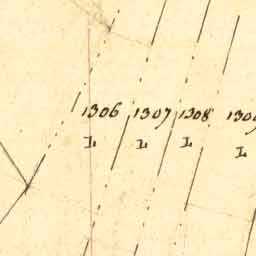 1306 1307 1308 1309
L L L L